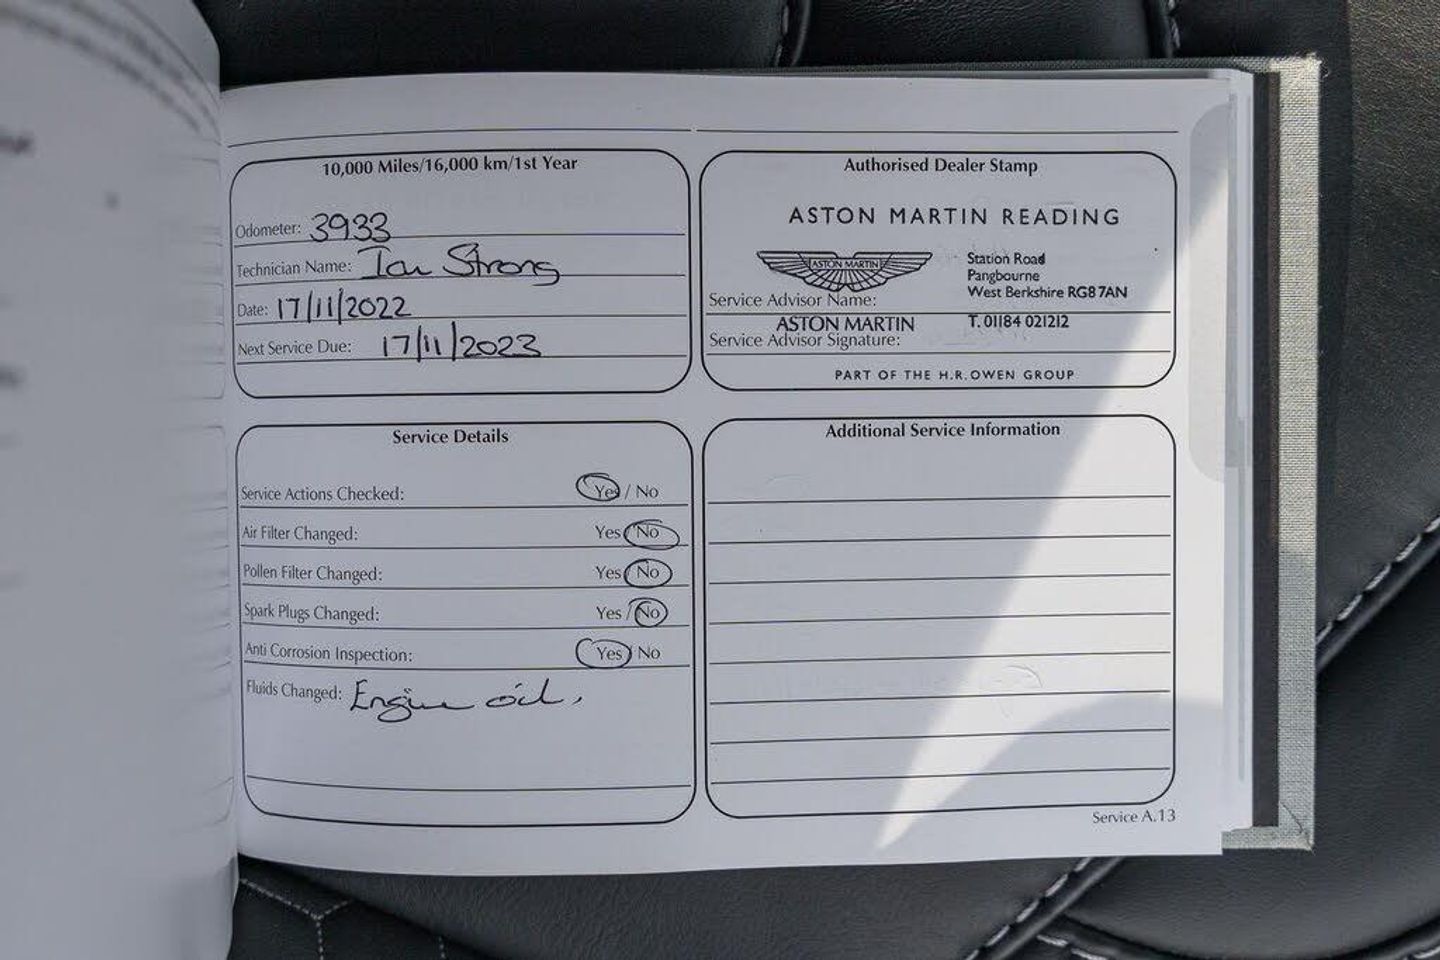 10,000 Miles/16,000 km/1st Year
Odometer: 3933
Technician Name: Ian Strong
Date: 17/11/2022
Next Service Due: 17/11/2023
Authorised Dealer Stamp
ASTON MARTIN READING
ASTON MARTIN
Station Road
Pangbourne
West Berkshire RG8 7AN
Service Advisor Name:
ASTON MARTIN
T. 01184 021212
Service Advisor Signature:
PART OF THE H.R.OWEN GROUP
Service Details
Service Actions Checked: Yes / No
Air Filter Changed: Yes / No
Pollen Filter Changed: Yes / No
Spark Plugs Changed: Yes / No
Anti Corrosion Inspection: Yes / No
Fluids Changed: Engine oil.
Additional Service Information
Service A.13